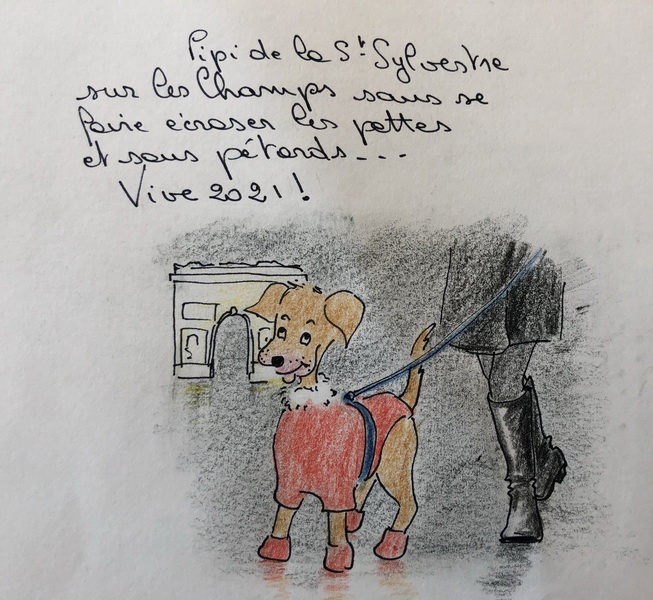 Pipi de la St Sylvestre
sur les Champs sans se
faire écraser les pattes
et sans pétards...
Vive 2021!